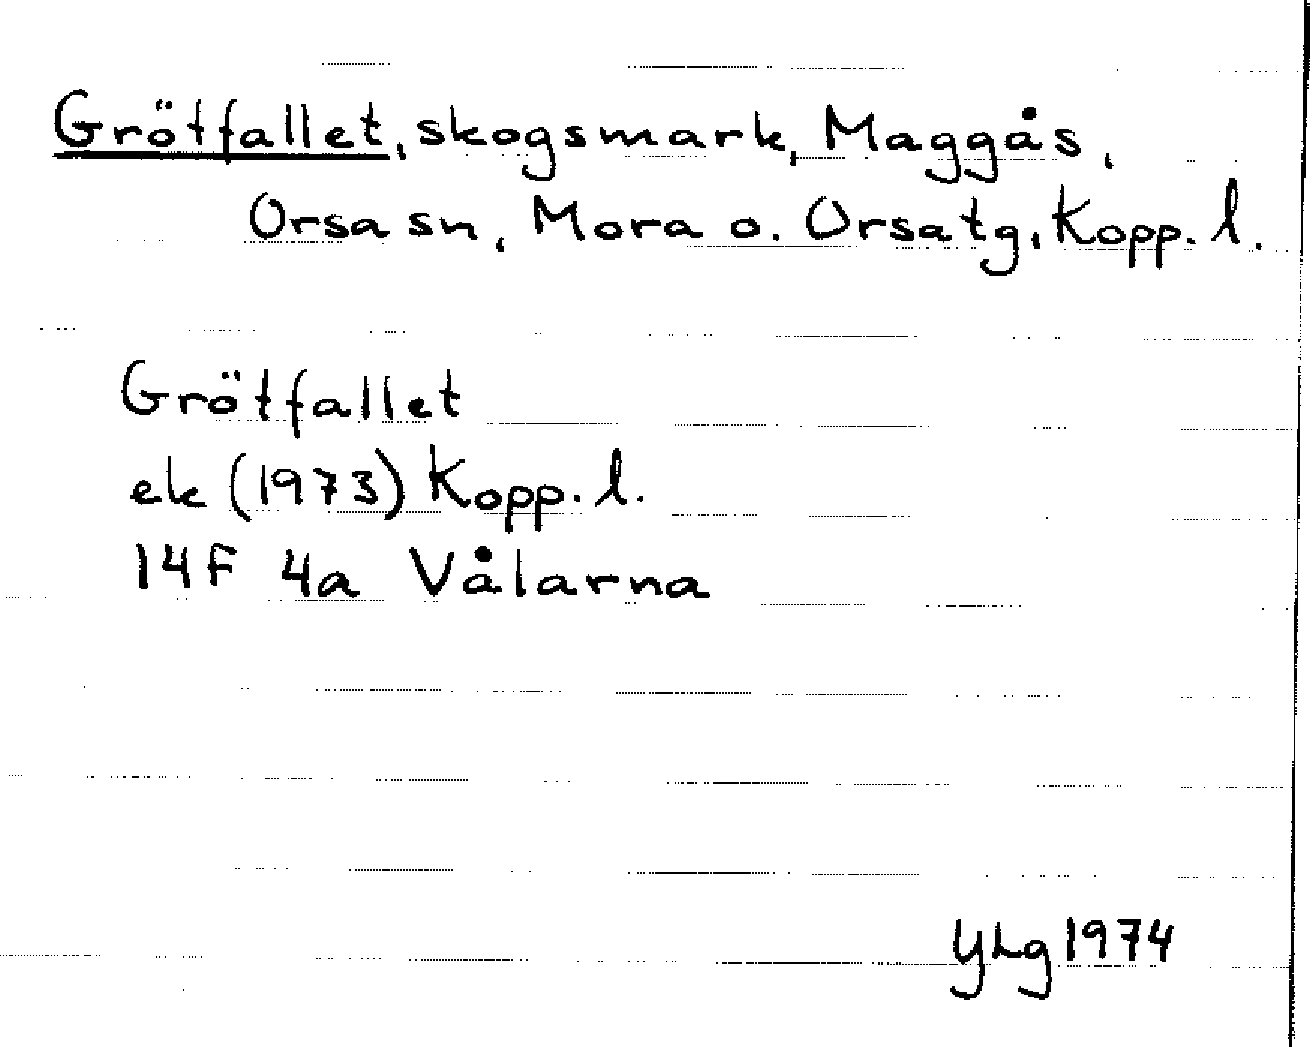 Grötfallet, skogsmark, Maggås,
Orsa sn, Mora o. Orsa tg, Kopp. l.
Grötfallet
ek (1973) Kopp. l.
14F 4a Vålarna
YLg 1974